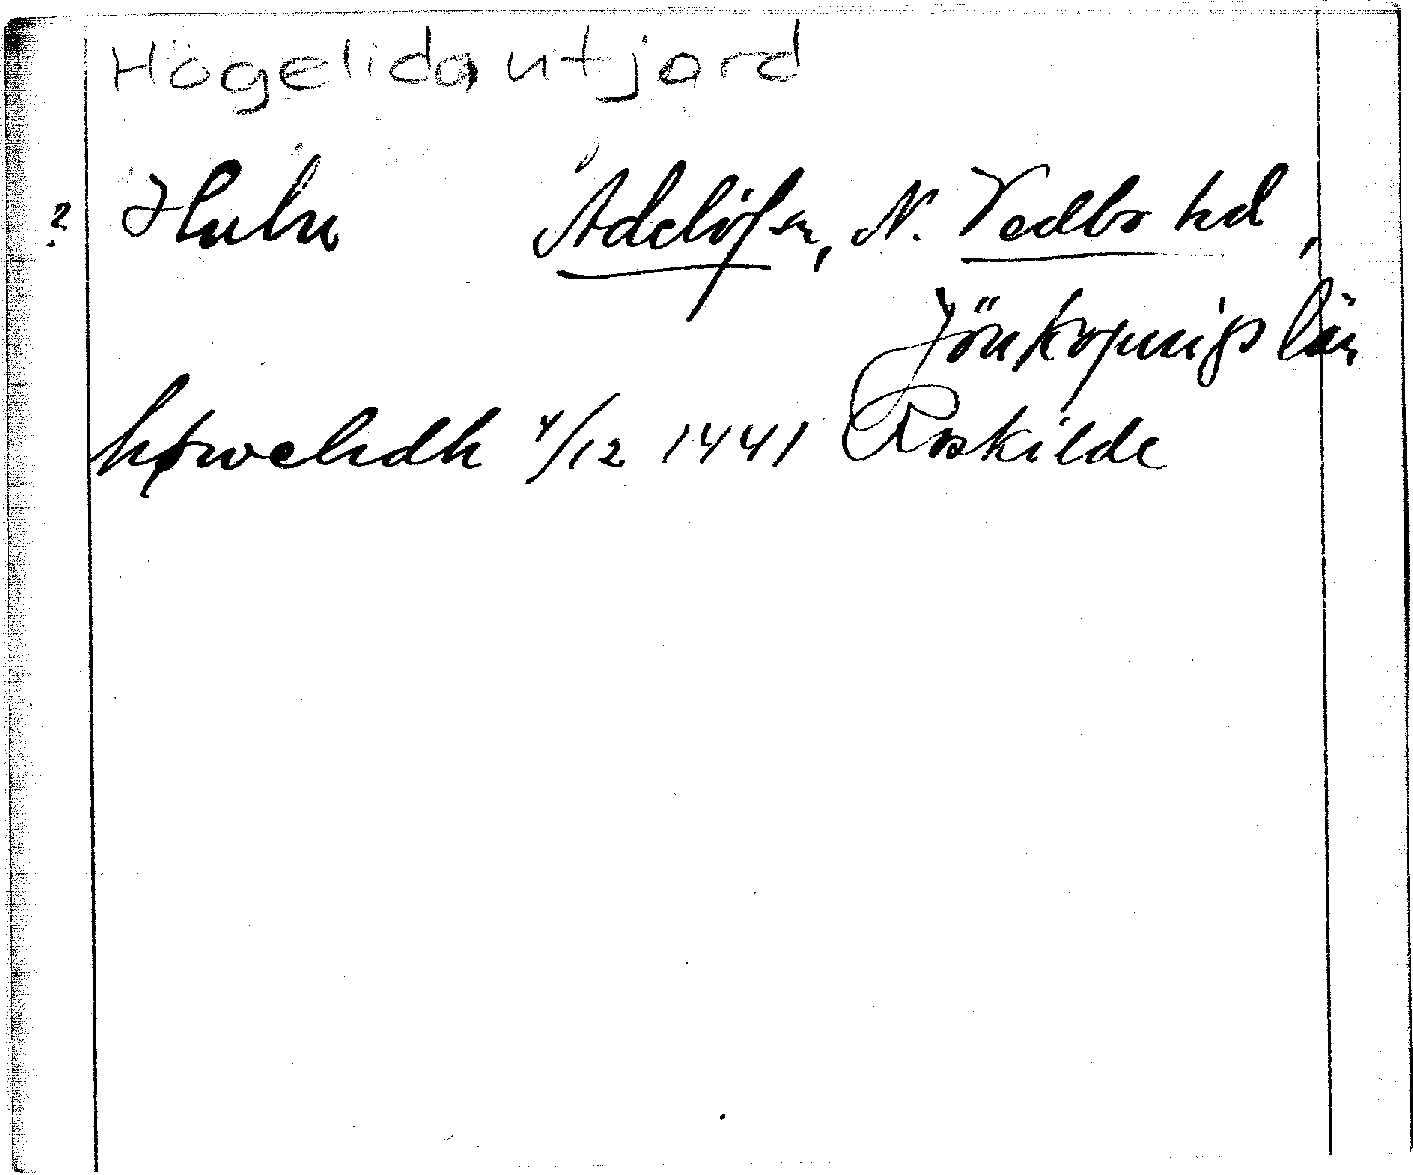 Högelida utjord
? Hulu Adelöfsn, N. Vedbo hd,
Jönköpings län
høwelidh 4/12 1441 Roskilde